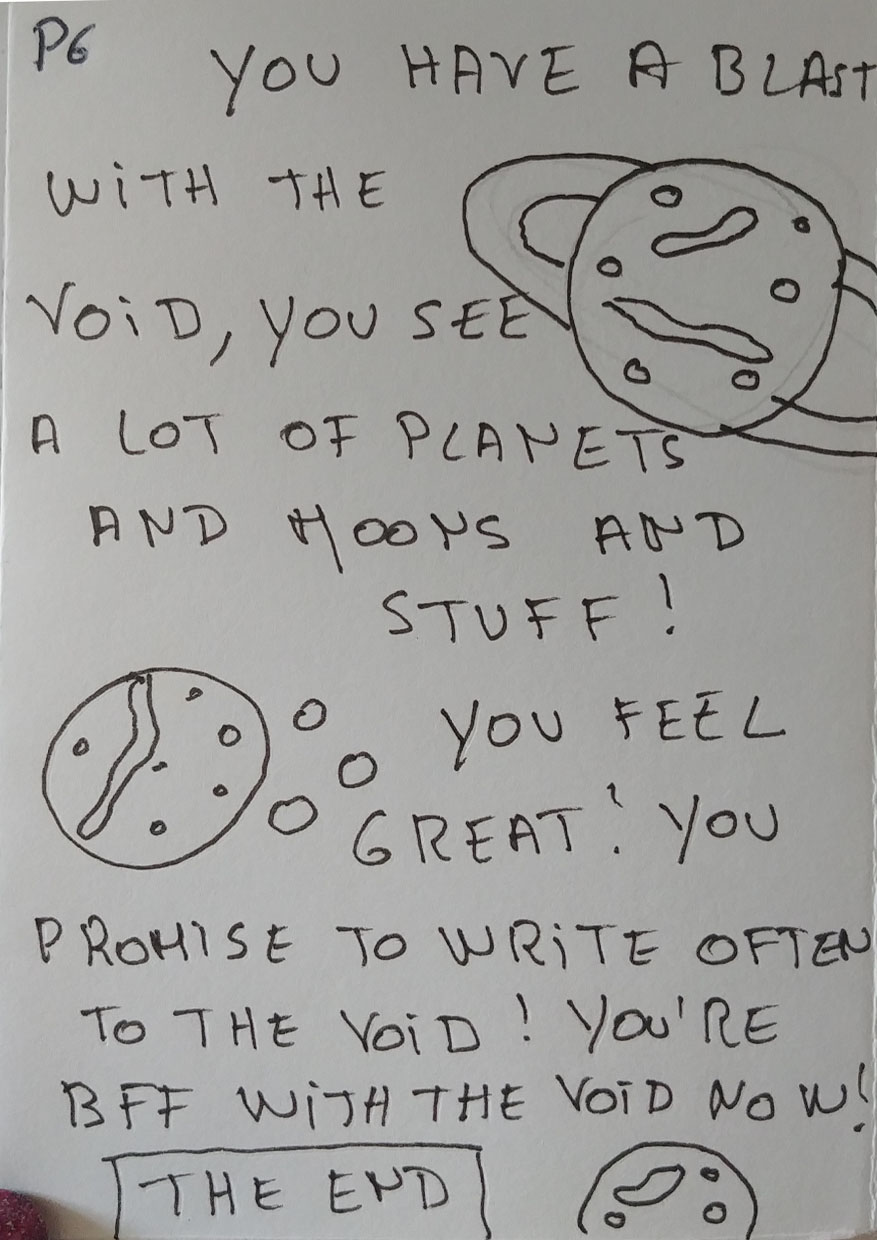 P6
YOU HAVE A BLAST
WITH THE
VOID, YOU SEE
A LOT OF PLANETS
AND MOONS AND
STUFF!
YOU FEEL
GREAT! YOU
PROMISE TO WRITE OFTEN
TO THE VOID! YOU'RE
BFF WITH THE VOID NOW!
THE END